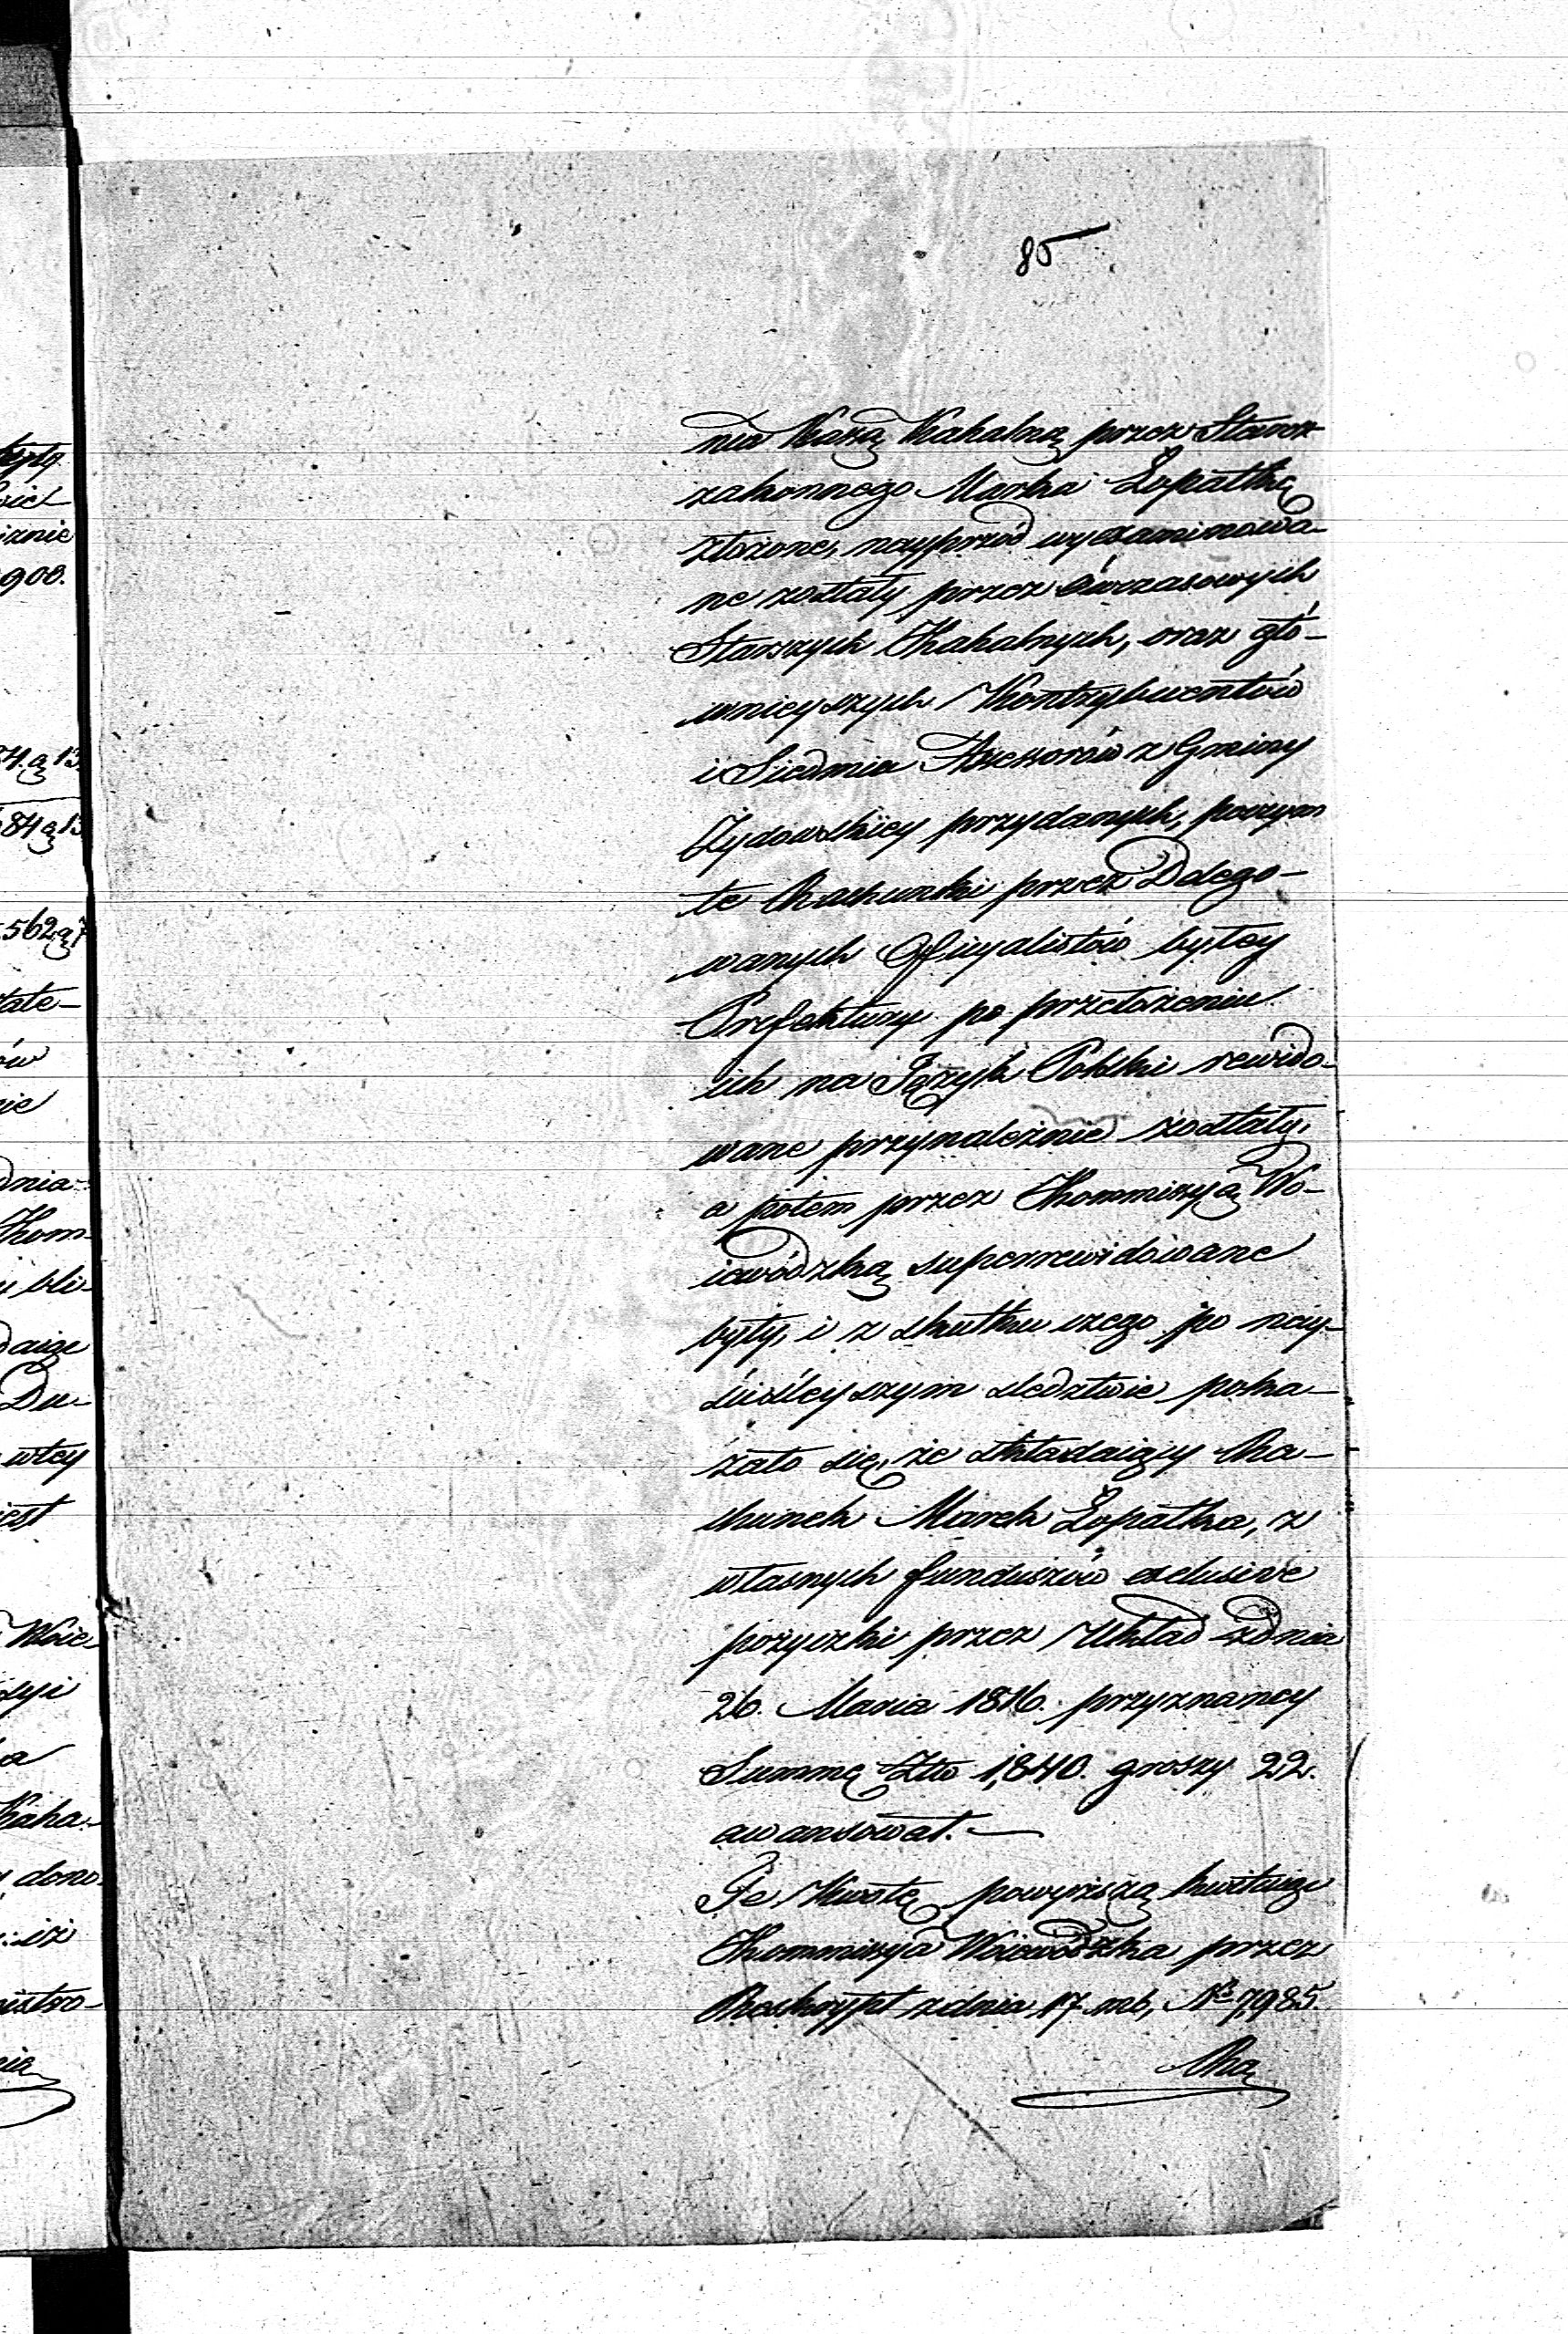 85
nia Kassą Kahalną przez Staroz
zakonnego Marka Łopatkę
złożone, nayprzód wyexaminowa-
ne zostały przez ówczasowych
Starszych Kahalnych, oraz głó-
wnieyszych Kontrybuentów
i Siedmia Assessorów z Gminy
Żydowskiey przydanych, poczym
te Rachunki przez Delego-
wanych Officyalistów byłey
Prefektury po przełożeniu
ich na Język Polski rewido-
wane przynależnie zostały,
a potem przez Kommissyą Wo-
iewódzką superrewidowane
były, i z skutku czego po nay-
ściśleyszym śledztwie poka-
zało się, że składaiący Ra-
chunek Marek Łopatka, z
własnych funduszów exclusive
pożyczki przez Układ z dnia
26. Marca 1816. przyznaney
Summę Złtp 1,840. groszy 22.
awansował. —
Te Kwotę powyższą kwituiąc
Kommissya Woiewódzka przez
Reskrypt z dnia 17 mb, Nro 7,985.
Ra
byłą
iznie
900.
84 g 13
562 g 7
tate-
ów
nie
dnia
Kom-
bli-
daiąc
Du-
wley
iest
Woie-
syi
Kaha-
dono-
iż
nistro-
nia